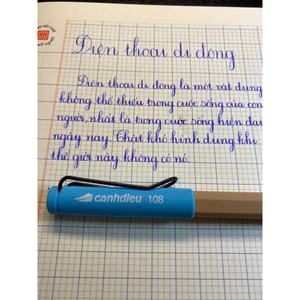 Điện thoại di động
Điện thoại di động là một vật dụng
không thể thiếu trong cuộc sống của con
người, nhất là trong cuộc sống hiện đại
ngày nay. Thật khó hình dung khi
thế giới này không có nó.
canhdieu 108